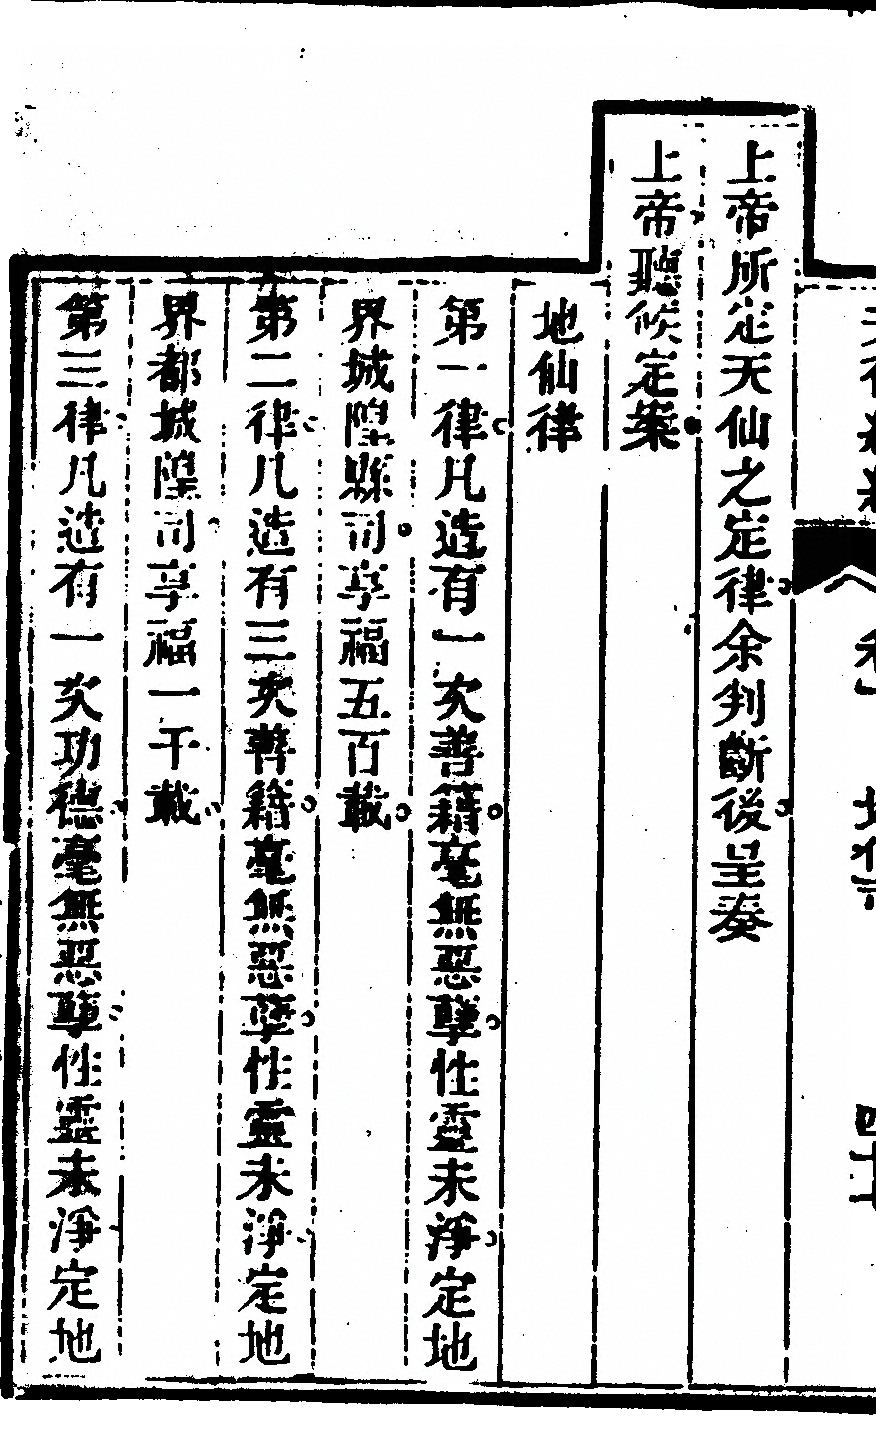 上帝所定天仙之定律余判斷後呈奏
上帝聽候定案
地仙律
第一律凡造有一次善籍毫無惡孽性靈未淨定地
界城隍縣司享福五百載
第二律凡造有三次善籍毫無惡孽性靈未淨定地
界都城隍司享福一千載
第三律凡造有一次功德毫無惡孽性靈未淨定地